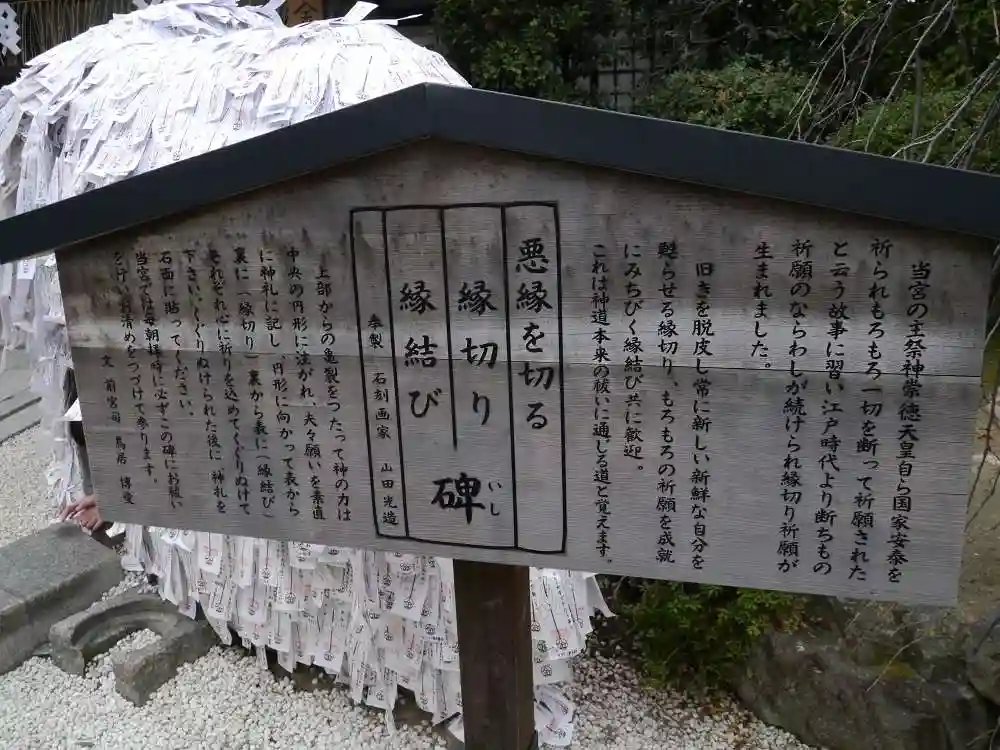 当宮の主祭神崇徳天皇自ら国家安泰を
祈られもろもろ一切を断って祈願された
と云う故事に習い江戸時代より断ちもの
祈願のならわしが続けられ縁切り祈願が
生まれました。
旧きを脱皮し常に新しい新鮮な自分を
甦らせる縁切り、もろもろの祈願を成就
にみちびく縁結び共に歓迎。
これは神道本来の祓いに通じる道と覚えます。
悪縁を切る
縁切り
縁結び
碑
いし
奉製 石刻画家 山田光造
上部からの亀裂をつたって神の力は
中央の円形に注がれ、夫々願いを素直
に神札に記し、円形に向かって表から
裏に(縁切り)裏から表に(縁結び)
それぞれ心に祈りを込めてくぐりぬけて
下さい。くぐりぬけられた後に 神札を
石面に貼ってください。
当宮では毎朝拝時に必ずこの碑にお祓い
をけいお清めをつづけて参ります。
文 前宮司 鳥居 博愛